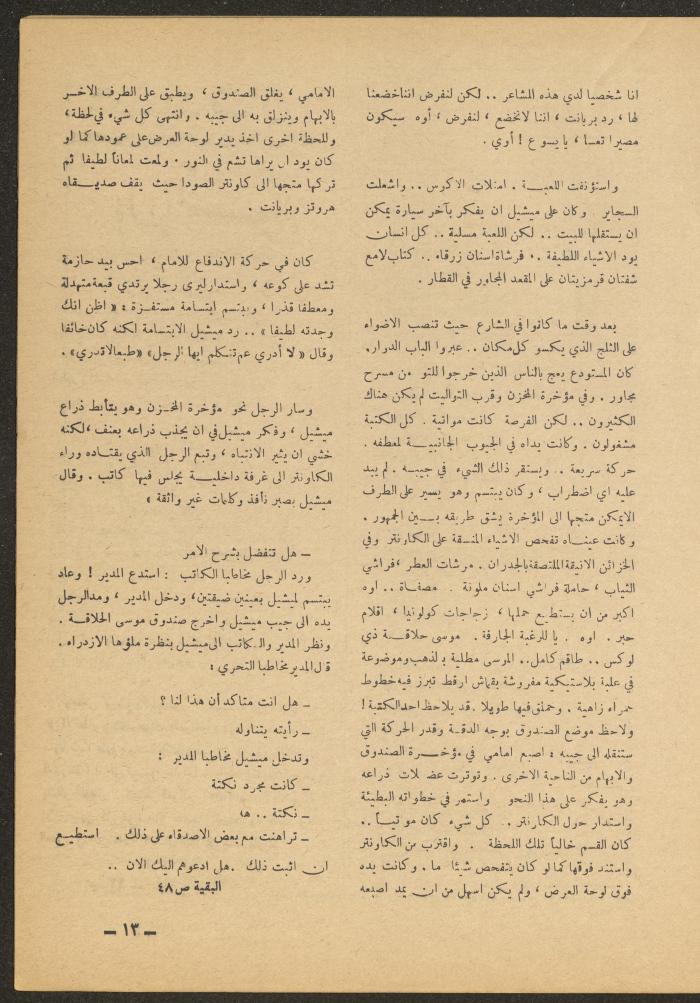 انا شخصيا لدي هذه المشاعر .. لكن لنفرض انناخضعنا
لها ، رد بريانت ، اننا لانخضع ، لنفرض ، أوه سيكون
مصيرا تعسا ، يا يسوع ! أوي .
واستؤنفت اللعبة . امتلات الاكوس .. واشعلت
السجاير وكان على ميشيل ان يفكر بآخر سيارة يمكن
ان يستقلها للبيت .. لكن اللعبة مسلية .. كل انسان
يود الاشياء اللطيفة .. فرشاة اسنان زرقاء .. كتاب لامع
شفتان قرمزيتان على المقعد المجاور في القطار .
بعد وقت ما كانوا في الشارع حيث تنصب الاضواء
على الثلج الذي يكسو كل مكان .. عبروا الباب الدوار.
كان المستودع يعج بالناس الذين خرجوا للتو من مسرح
مجاور . وفي مؤخرة المخزن وقرب التواليت لم يكن هناك
الكثيرون .. لكن الفرصة كانت مواتية . كل الكتبة
مشغولون . وكانت يداه في الجيوب الجانبيـة لمعطفه .
حركة سريعة .. ويستقر ذلك الشيء في جيبه . لم يبد
عليه اي اضطراب ، وكان يبتسم وهو يسير على الطرف
الايمكن متجها الى المؤخرة يشق طريقه بـين الجمهور .
وكانت عينـاه تفحص الاشياء المنسقة على الكاونتر وفي
الخزائن الانيقة الملتصقة بالجدران . مرشات العطر ، فراشي
الثياب ، حاملة فراشي اسنان ملونة . مصفـاة .. اوه
اكبر من ان يستطيع حملها ، زجاجات كولونيا ، اقلام
حبر . اوه . يا للرغبة الجارفة . موسى حلاقـة ذي
لوكس .. طاقم كامل.. الموسى مطلية بالذهب وموضوعة
في علبة بلاستيكية مفروشة بقماش ارقط تبرز فيه خطوط
حمراء زاهية . وحملق فيها طويلا . قد يلاحظ احد الكتبة !
ولاحظ موضع الصندوق بوجه الدقـة وقدر الحركة التي
ستنقله الى جيبه : اصبع امامي في مؤخـرة الصندوق
والابهام من الناحية الاخرى . وتوترت عضـلات ذراعه
وهو يفكر على هذا النحو واستمر في خطواته البطيئة
واستدار حول الكاونتر .. كل شيء كان موتيـاً ..
كان القسم خالياً تلك اللحظة . واقترب من الكاونتر
واستند فوقها كما لو كان يتفحص شيئا ما . وكانت يده
فوق لوحة العرض ، ولم يكن اسهل من ان يمد اصبعه
الامامي ، يغلق الصندوق ، ويطبق على الطرف الاخـر
بالابهام وينزلق به الى جيبه . وانتهى كل شيء في لحظة ،
وللحظة اخرى اخذ يدير لوحة العرض على عمودها كما لو
كان يود ان يراها تشع في النور . ولمعت لمعاناً لطيفا ثم
تركها متجها الى كاونتر الصودا حيث يقف صديقـاه
هروتز وبريانت .
كان في حركة الاندفاع للامام ، احس بيد حازمة
تشد على كوعه ، واستدار ليرى رجلا يرتدي قبعة متهدلة
ومعطفا قذرا ، ويبتسم ابتسامة مستفـزة : « اظن انك
وجدته لطيفا » .. رد ميشيل الابتسامة لكنه كان خائفا
وقال « لا أدري عم تتكلم ايها الرجل » « طبعا لاتدري » .
وسار الرجل نحو مؤخرة المخـزن وهو يتأبط ذراع
ميشيل ، وفكر ميشيل في ان يجذب ذراعه بعنف ، لكنه
خشي ان يثير الانتباه ، وتبع الرجل الذي يقتـاده وراء
الكاونتر الى غرفة داخليـة يجلس فيها كاتب . وقال
ميشيل بصبر نافذ وكلمات غير واثقة :
ـ هل تتفضل بشرح الامر
ورد الرجل مخاطبا الكاتب : استدع المدير ! وعاد
يبتسم لميشيل بعينين ضيقتين، ودخل المدير ، ومد الرجل
يده الى جيب ميشيل واخرج صندوق موسى الحلاقـة .
ونظر المدير والكاتب الى ميشيل بنظرة ملؤها الازدراء .
قال المدير مخاطبا التحري :
ـ هل انت متاكد أن هذا لنا ؟
ـ رأيته يتناوله
وتدخل ميشيل مخاطبا المدير :
ـ كانت مجرد نكتة
ـ نكتة .. هه
ـ تراهنت مع بعض الاصدقاء على ذلك . استطيـع
ان اثبت ذلك . هل ادعوهم اليك الان ..
البقية ص ٤٨
ـ ١٣ ـ